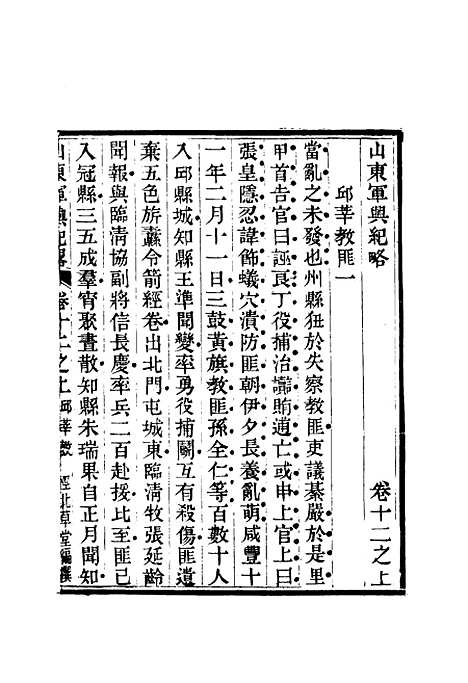 山東軍興紀略　卷十二之上
邱莘教匪一
當亂之未發也州縣狃於失察教匪吏議綦嚴於是里
甲首告官曰誣良丁役捕治譸賄逋亡或申上官上曰
張皇隱忍諱飾蟻穴潰防匪朝伊夕長養亂萌咸豐十
一年二月十一日三鼓黃旗教匪孫全仁等百數十人
入邱縣城知縣王準聞變率勇役捕鬭互有殺傷匪遺
棄五色旂纛令箭經卷出北門屯城東臨清牧張延齡
聞報與臨清協副將信長慶率兵二百赴援比至匪已
入冠縣三五成羣宵聚晝散知縣朱瑞果自正月聞知
山東軍興紀略　卷十二之上　邱莘教　北草堂編撰